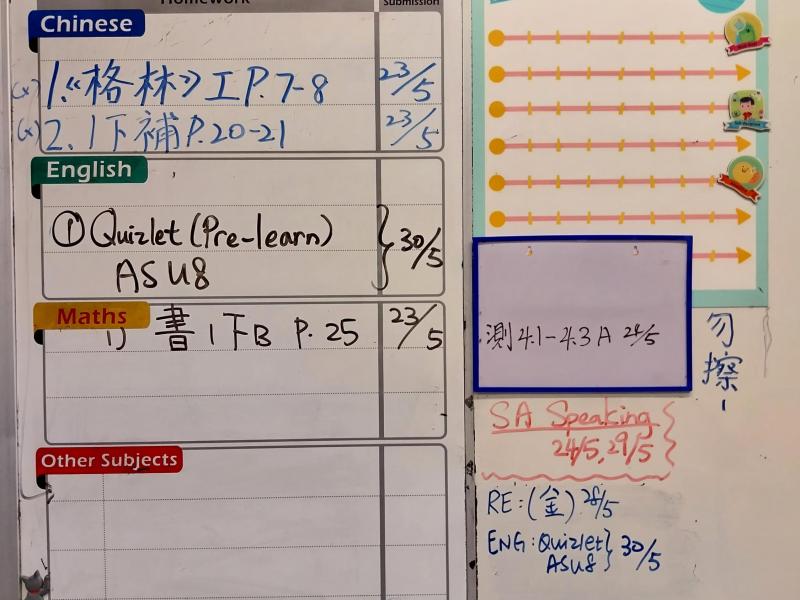 Homework
Submission
Chinese
(x) 1.《格林》工P.7-8 23/5
(x) 2. 1下補P.20-21 23/5
English
① Quizlet (Pre-learn)
ASU8 } 30/5
Maths
1) 書1下B P.25 23/5
Other Subjects
測4.1-4.3A 24/5
勿擦!
SA Speaking
24/5, 29/5
RE:(金) 28/5
ENG: Quizlet
ASU8 } 30/5